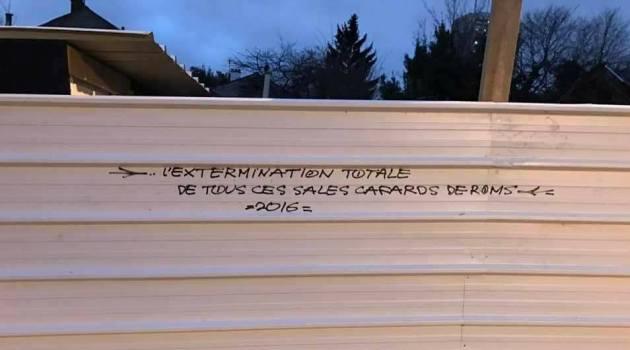 →.. L'EXTERMINATION TOTALE
DE TOUS CES SALES CAFARDS DE ROMS ←=
=2016=